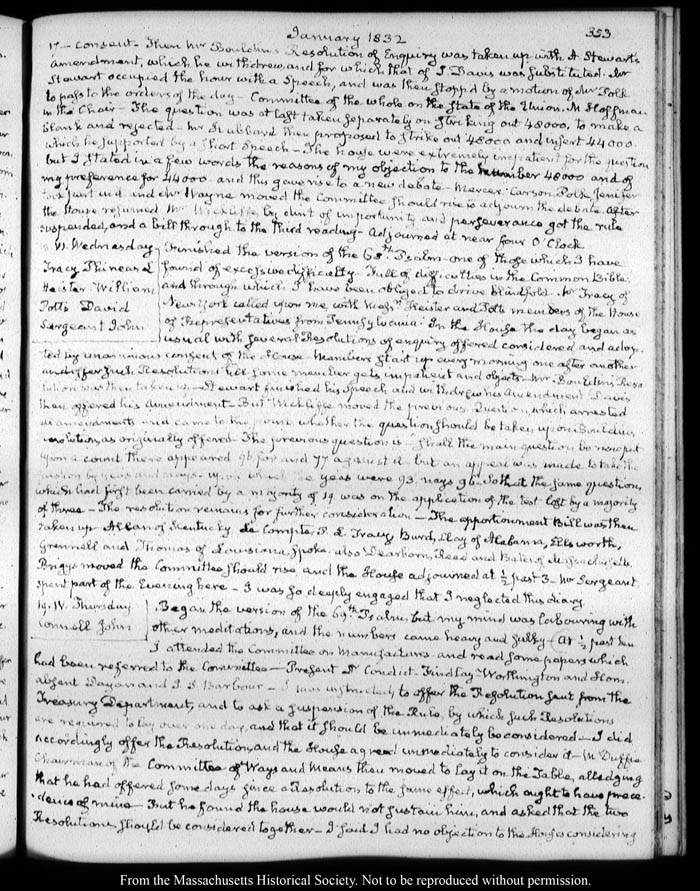 January 1832 353
17— Consent. Then Mr Bouldin's Resolution of Enquiry was taken up with A Stewart's
amendment, which he withdrew, and for which that of J. Davis was substituted. Mr
Stewart occupied the hour with a Speech, and was then stopp'd by a motion of Mr Polk
to pass to the orders of the day— Committee of the whole on the State of the Union. M. Hoffman
in the Chair— The question was at last taken separately on striking out 48000, to make a
blank and rejected— Mr Hubbard then proposed to strike out 48000 and insert 44000
which he supported by a short Speech— The house were extremely impatient for the question
but I stated in a few words the reasons of my objection to the number 48000 and of
my preference for 44000 and this gave rise to a new debate— Mercer, Carson, Polk, Jenifer
took part in it and Mr Wayne moved the Committee should rise to adjourn the debate. After
the House resumed Mr Wickliffe by dint of importunity and perseverance got the rule
suspended, and a bill through to the third reading— Adjourned at near four O'Clock.
18. IV. Wednesday Finished the version of the 68th Psalm— one of those which I have
Tracy Phineas L found of excessive difficulty. Full of difficulties in the Common Bible,
Heister William and through which I have been obliged to drive blindfold. Mr Tracy of
Potts David New York called upon me, with Messrs Heister and Potts members of the House
Sergeant John of Representatives from Pennsylvania. In the House the day began as
usual with several Resolutions of enquiry offered considered and adop-
ted by unanimous consent of the House— Members start up every morning one after another
and offer such Resolutions till some member gets impatient and objects— Mr Bouldin's Reso-
lution was then taken up— Stewart finished his Speech and withdrew his Amendment Davis
then offered his Amendment— But Wickliffe moved the previous Question, which arrested
all amendments and came to the point whether the question should be taken upon Bouldin's
resolution as originally offered— The previous question is— Shall the main question be now put
upon a count there appeared 96 for and 77 against it. but an appeal was made to take the
question by yeas and nays— upon which the yeas were 93. nays 96. So that the same question,
which had first been carried by a majority of 19 was on the application of the test lost by a majority
of three— The resolution remains for further consideration— The apportionment Bill was then
taken up— Allan of Kentucky, Le Compte, P. L. Tracy Burd, Clay of Alabama, Ellsworth,
Grennell and Thomas of Louisiana, spoke. also Dearborn, Reed and Bates of Massachusetts.
Briggs moved the Committee should rise, and the House adjourned at ½ past 3— Mr Sergeant
spent part of the Evening here— I was so deeply engaged that I neglected this diary
19. IV. Thursday Began the version of the 69th Psalm, but my mind was labouring with
Connell John other meditations, and the numbers came heavy and sulky— At ½ past ten
I attended the Committee on Manufactures and read some papers which
had been referred to the Committee— Present Dr Condict. Findlay Worthington and Horn.
absent Dayan and J. S. Barbour— I was instructed to offer the Resolution sent from the
Treasury Department, and to ask a suspension of the Rule, by which such Resolutions
are required to lay over one day, and that it should be immediately considered— I did
accordingly offer the Resolution, and the House agreed immediately to consider it— McDuffie
Chairman of the Committee of Ways and Means then moved to lay it on the Table, alledging
that he had offered some days since a Resolution to the same effect, which ought to have prece-
dence of mine— But he found the house would not sustain him, and asked that the two
Resolutions should be considered together— I said I had no objection to the Houses considering
From the Massachusetts Historical Society. Not to be reproduced without permission.